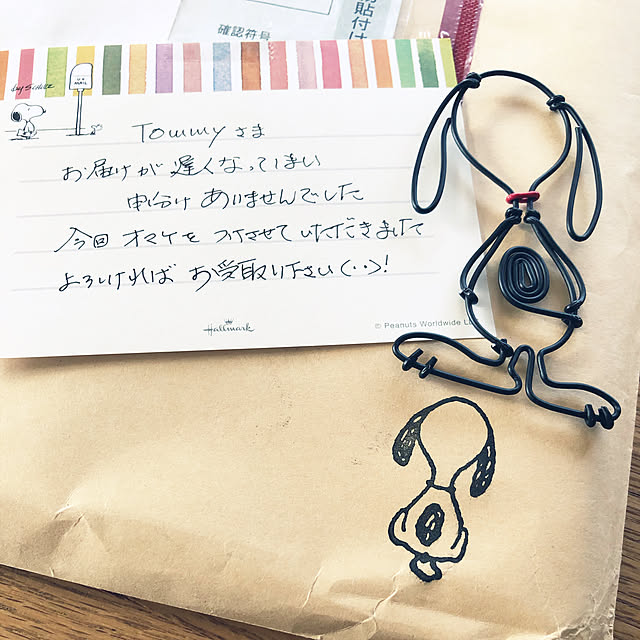 確認符号
貼付け
Tommyさま
お届けが遅くなってしまい
申し分け ありませんでした
今回 オマケを つけさせて いただきました
よろしければ お受取り下さい(・・)!
Hallmark
© Peanuts Worldwide L